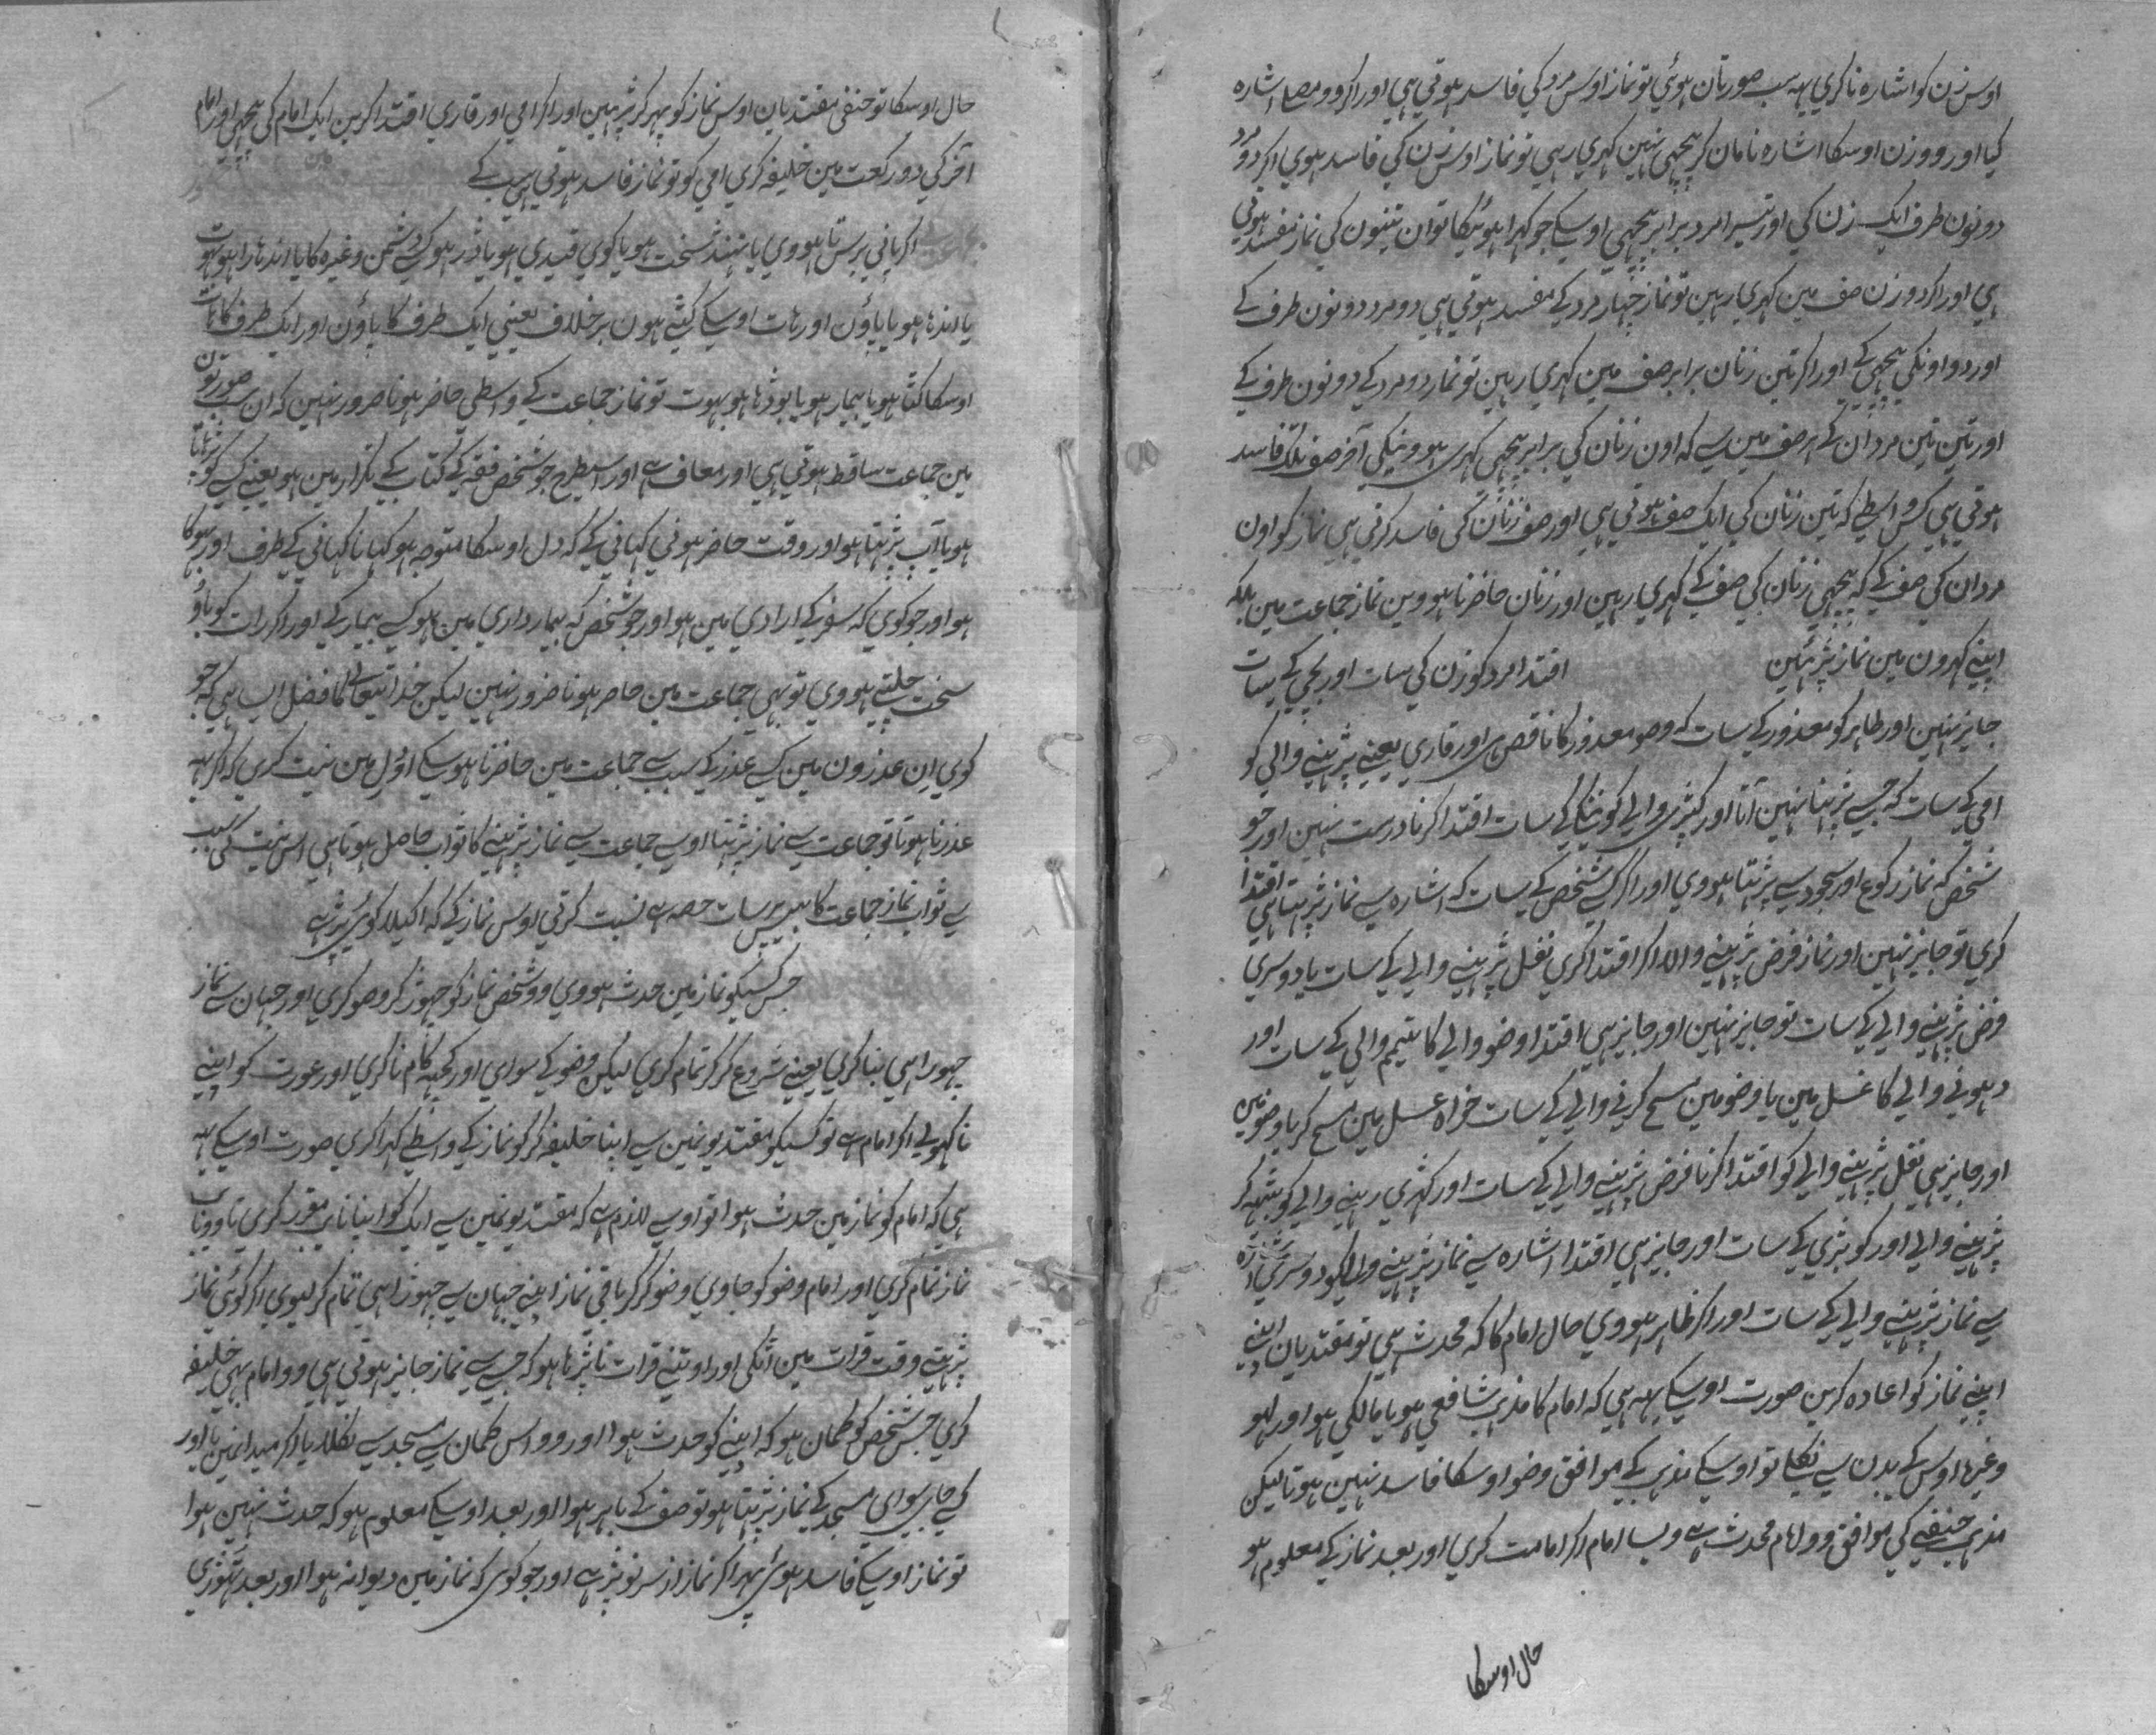 اوس زن کو اشارہ نا کری یہہ سب صورتان ہوئی تو نماز اوس مرد کی فاسد ہوتی ہی اور اگر وو مصلی اشارہ
کیا اور وو زن اوسکا اشارہ نا مان کر پیچھی نہین کہری رہی تو نماز اوس زن کی فاسد ہوی اگر دو مرد
دونون طرف ایک زن کی اور تیسرا مرد برابر پیچھی اوسکے جو کہرا ہوئیگا تو ان تینون کی نماز مفسد ہوتی
ہی اور اگر دو زن صف مین کہری رہین تو نماز چہار مرد کے مفسد ہوتی ہی دو مرد دونون طرف کے
اور دو اونکی پیچھی کے اور اگر تین زنان برابر صف مین کہری رہین تو نماز دو مرد کے دونون طرف کے
اور تین تین مردان کے ہر صف مین سے کہ اون زنان کی برابر پیچھی کہری ہووینگی آخر صف تلک فاسد
ہوتی ہی کس واسطے کہ تین زنان کی ایک صف ہوتی ہی اور صف زنان کی فاسد کرتی ہی نماز کو اون
مردان کی صف کے کہ پیچھی زنان کی صف کے کہری رہین اور زنان حاضر نا ہووین نماز جماعت مین بلکہ
اپنے گہرون مین نماز پڑہین اقتدا مرد کو زن کی سات اور بچی کے سات
جایز نہین اور طاہر کو معذور کے سات کہ وضو معذور کا ناقص ہی اور قاری یعنے پڑہنے والی کو
امی کے سات کہ جسے پڑہنا نہین آتا اور کپڑی والے کو ننگے کے سات اقتدا کرنا درست نہین اور جو
شخص کہ نماز رکوع اور سجود سے پڑہتا ہووی اور اگر اسے شخص کے سات کہ اشارہ سے نماز پڑہتا ہی اقتدا
کری تو جایز نہین اور نماز فرض پڑہنے والا اگر اقتدا کری نفل پڑہنے والے کے سات یا دوسری
فرض پڑہنے والے کے سات تو جایز نہین اور جایز ہی اقتدا وضو والے کا تیمم والی کے سات اور
دہونے والے کا غسل مین یا وضو مین مسح کرنے والے کے سات خواہ غسل مین مسح کر یا وضو مین
اور جایز ہی نفل پڑہنے والے کو اقتدا کرنا فرض پڑہنے والے کے سات اور کہڑی رہنے والے کو بیٹہہ کر
پڑہنے والے اور کوبڑی کے سات اور جایز ہی اقتدا اشارہ سے نماز پڑہنے والیکو دوسری اشارہ
سے نماز پڑہنے والے کے سات اور اگر ظاہر ہووی حال امام کا کہ محدث ہی تو مقتدیان اپنے
اپنے نماز کو اعادہ کرین صورت اوسکے یہہ ہی کہ امام کا مذہب شافعی ہو یا مالکی ہو اور لہو
وغیرہ اوس کے بدن سے نکلے تو اوسکے مذہب کے موافق وضو اوسکا فاسد نہین ہوتا لیکن
مذہب حنفیے کی موافق وو امام محدث ہے ویسا امام اگر امامت کری اور بعد نماز کے معلوم ہو
حال اوسکا
حال اوسکا تو حنفی مقتدیان اوس نماز کو پہر کر پڑہین اور اگر امی اور قاری اقتدا کرین ایک امام کی پیچھی اور امام
آخر کی دو رکعت مین خلیفہ کری امی کو تو نماز فاسد ہوتی ہی سب کے
اگر پانی برستا ہووی یا تہنڈ سخت ہو یا کوی قیدی ہو یا ڈر ہو کسے دشمن وغیرہ کا یا اندہارا ہو بہوت
یا اندہا ہو یا پاؤن اور ہات اوسکے کٹے ہون بر خلاف یعنی ایک طرف کا پاؤن اور ایک طرف کا ہات
اوسکا کٹا ہو یا بیمار ہو یا بوڈہا ہو بہوت تو نماز جماعت کے واسطی حاضر ہونا ضرور نہین کہ ان سب صورتون
مین جماعت ساقط ہوتی ہی اور معاف ہے اور اسیطرح جو شخص فقہ کے کتاب کے تکرار مین ہو یعنے کسے کو پڑہاتا
ہو یا آپ پڑہتا ہو اور وقت حاضر ہونی کہانی کے کہ دل اوسکا متوجہ ہو کہانا کہانی کے طرف اور بہوکا
ہو اور جو کوی کہ سفر کے ارادی مین ہو اور جو شخص کہ بیمار داری مین ہو کسے بیمار کے اور اگر رات کو باؤ
سخت چلتے ہووی تو بہی جماعت مین حاضر ہونا ضرور نہین لیکن خدایتعالی کا فضل ایسا ہی کہ جو
کوی ان عذرون مین کسے عذر کے سبب سے جماعت مین حاضر نا ہو سکے اؤل مین نیت کری کہ اگر یہہ
عذر نا ہوتا تو جماعت سے نماز پڑہتا اوسے جماعت سے نماز پڑہنے کا ثواب حاصل ہوتا ہی اس نیت کی سبب
سے ثواب نماز جماعت کا بیس پر سات حصہ ہے نسبت کرتی اوس نماز کے کہ اکیلا کوئی پڑہے
جس کسیکو نماز مین حدث ہووی وو شخص نماز کو چہوڑ کر وضو کری اور جہان سے نماز
چہوڑا ہی بنا کری یعنے شروع کر کر تمام کری لیکن وضو کے سوای اور کچہہ کام نا کری اور عورت کو اپنے
نا کہولے اگر امام ہے تو کسیکو مقتدیونمین سے اپنا خلیفہ کر کو نماز کے واسطے کہرا کری صورت اوسکے یہہ
ہی کہ امام کو نماز مین حدث ہوا تو اوسے لازم ہے کہ مقتدیونمین سے ایک کو اپنا نایب مقرر کری تا وو نایب
نماز تمام کری اور امام وضو کو جاوی وضو کر کر باقی نماز اپنے جہان سے چہوڑا ہی تمام کر لیوی اگر کوئی نماز
پڑہتے وقت قرات مین اٹکی اور اوتنے قرات نا پڑہا ہو کہ جسے نماز جایز ہوتی ہی وو امام بہی خلیفہ
کری جس شخص کو گمان ہو کہ اپنے کو حدث ہوا اور وو اس گمان سے مسجد سے نکلا یا اگر میدانمین یا اور
کسے جای سوای مسجد کے نماز پڑہتا ہو تو صف کے باہر ہوا اور بعد اوسکے معلوم ہو کہ حدث نہین ہوا
تو نماز اوسکے فاسد ہوئی پہر اکر نماز از سر نو پڑہے اور جو کوی کہ نماز مین دیوانہ ہوا اور بعد تہوڑی